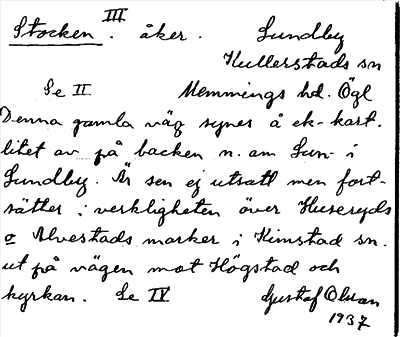 Stocken III. åker. Sundby
Kullerstads sn
Se II Memmings hd. Ögl
Denna gamla väg synes å ek-kart.
litet av på backen n. om Sun- i
Sundby. Är sen ej utsatt men fort-
sätter i verkligheten över Huseryds
o Alvestads marker i Kimstad sn.
ut på vägen mot Högstad och
kyrkan. Se IV Gustaf Olsson
1937